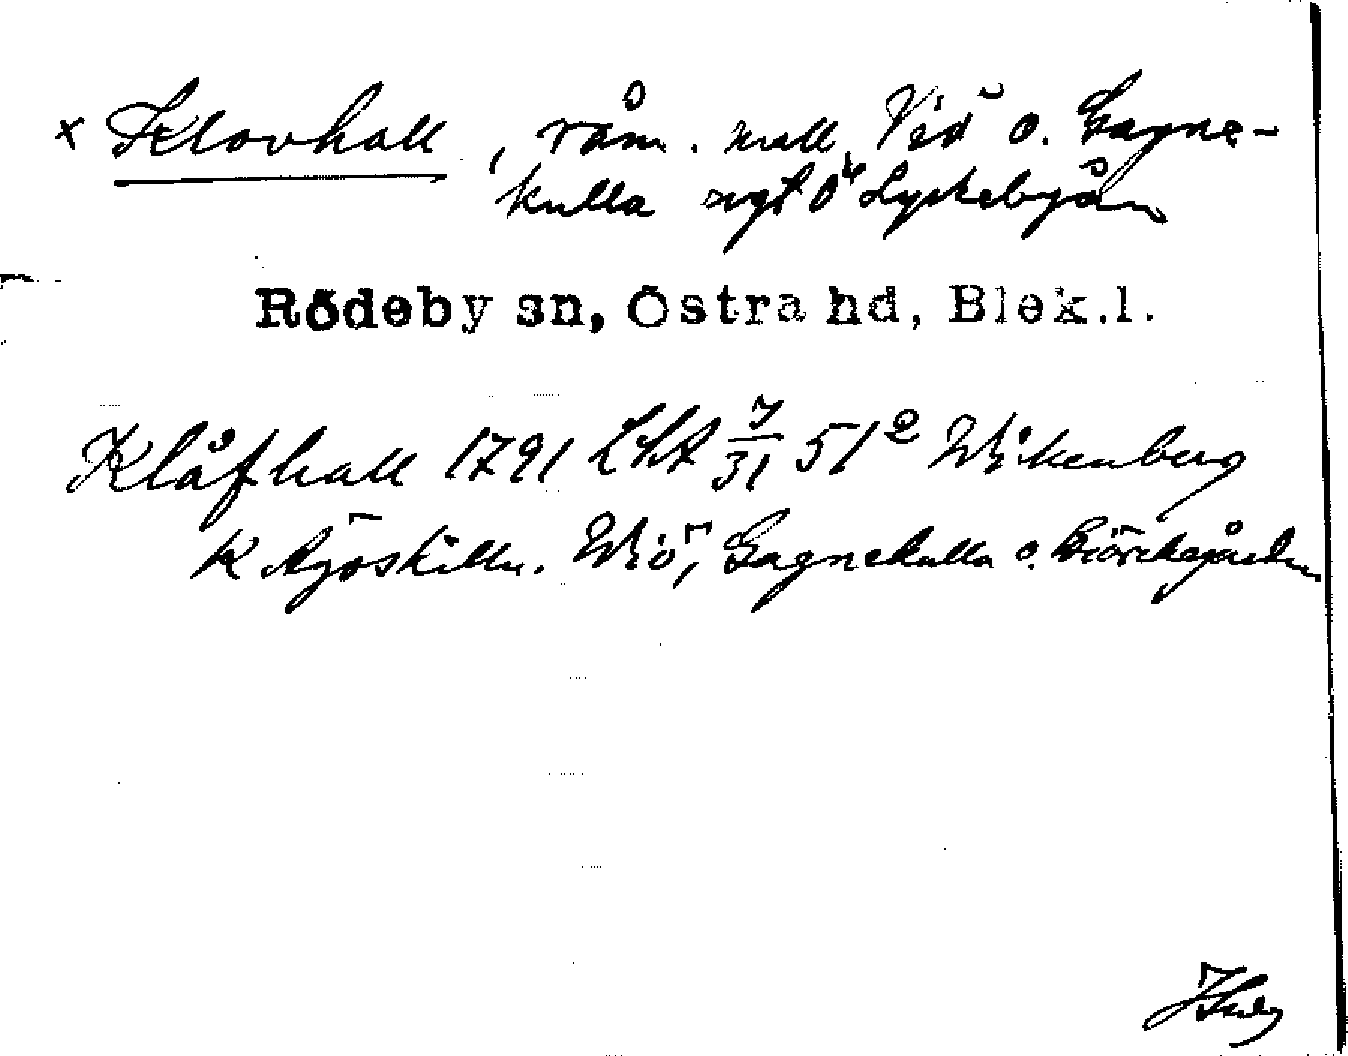 x Klovhall, råm. mell. Viö o. Gagne-
kulla ngt ö Lyckebyån
Rödeby sn, Östra hd, Blek.l.
Klåfhall 1791 LSA 7/31 51² Wikenberg
K Wiö, Gagnekulla o.